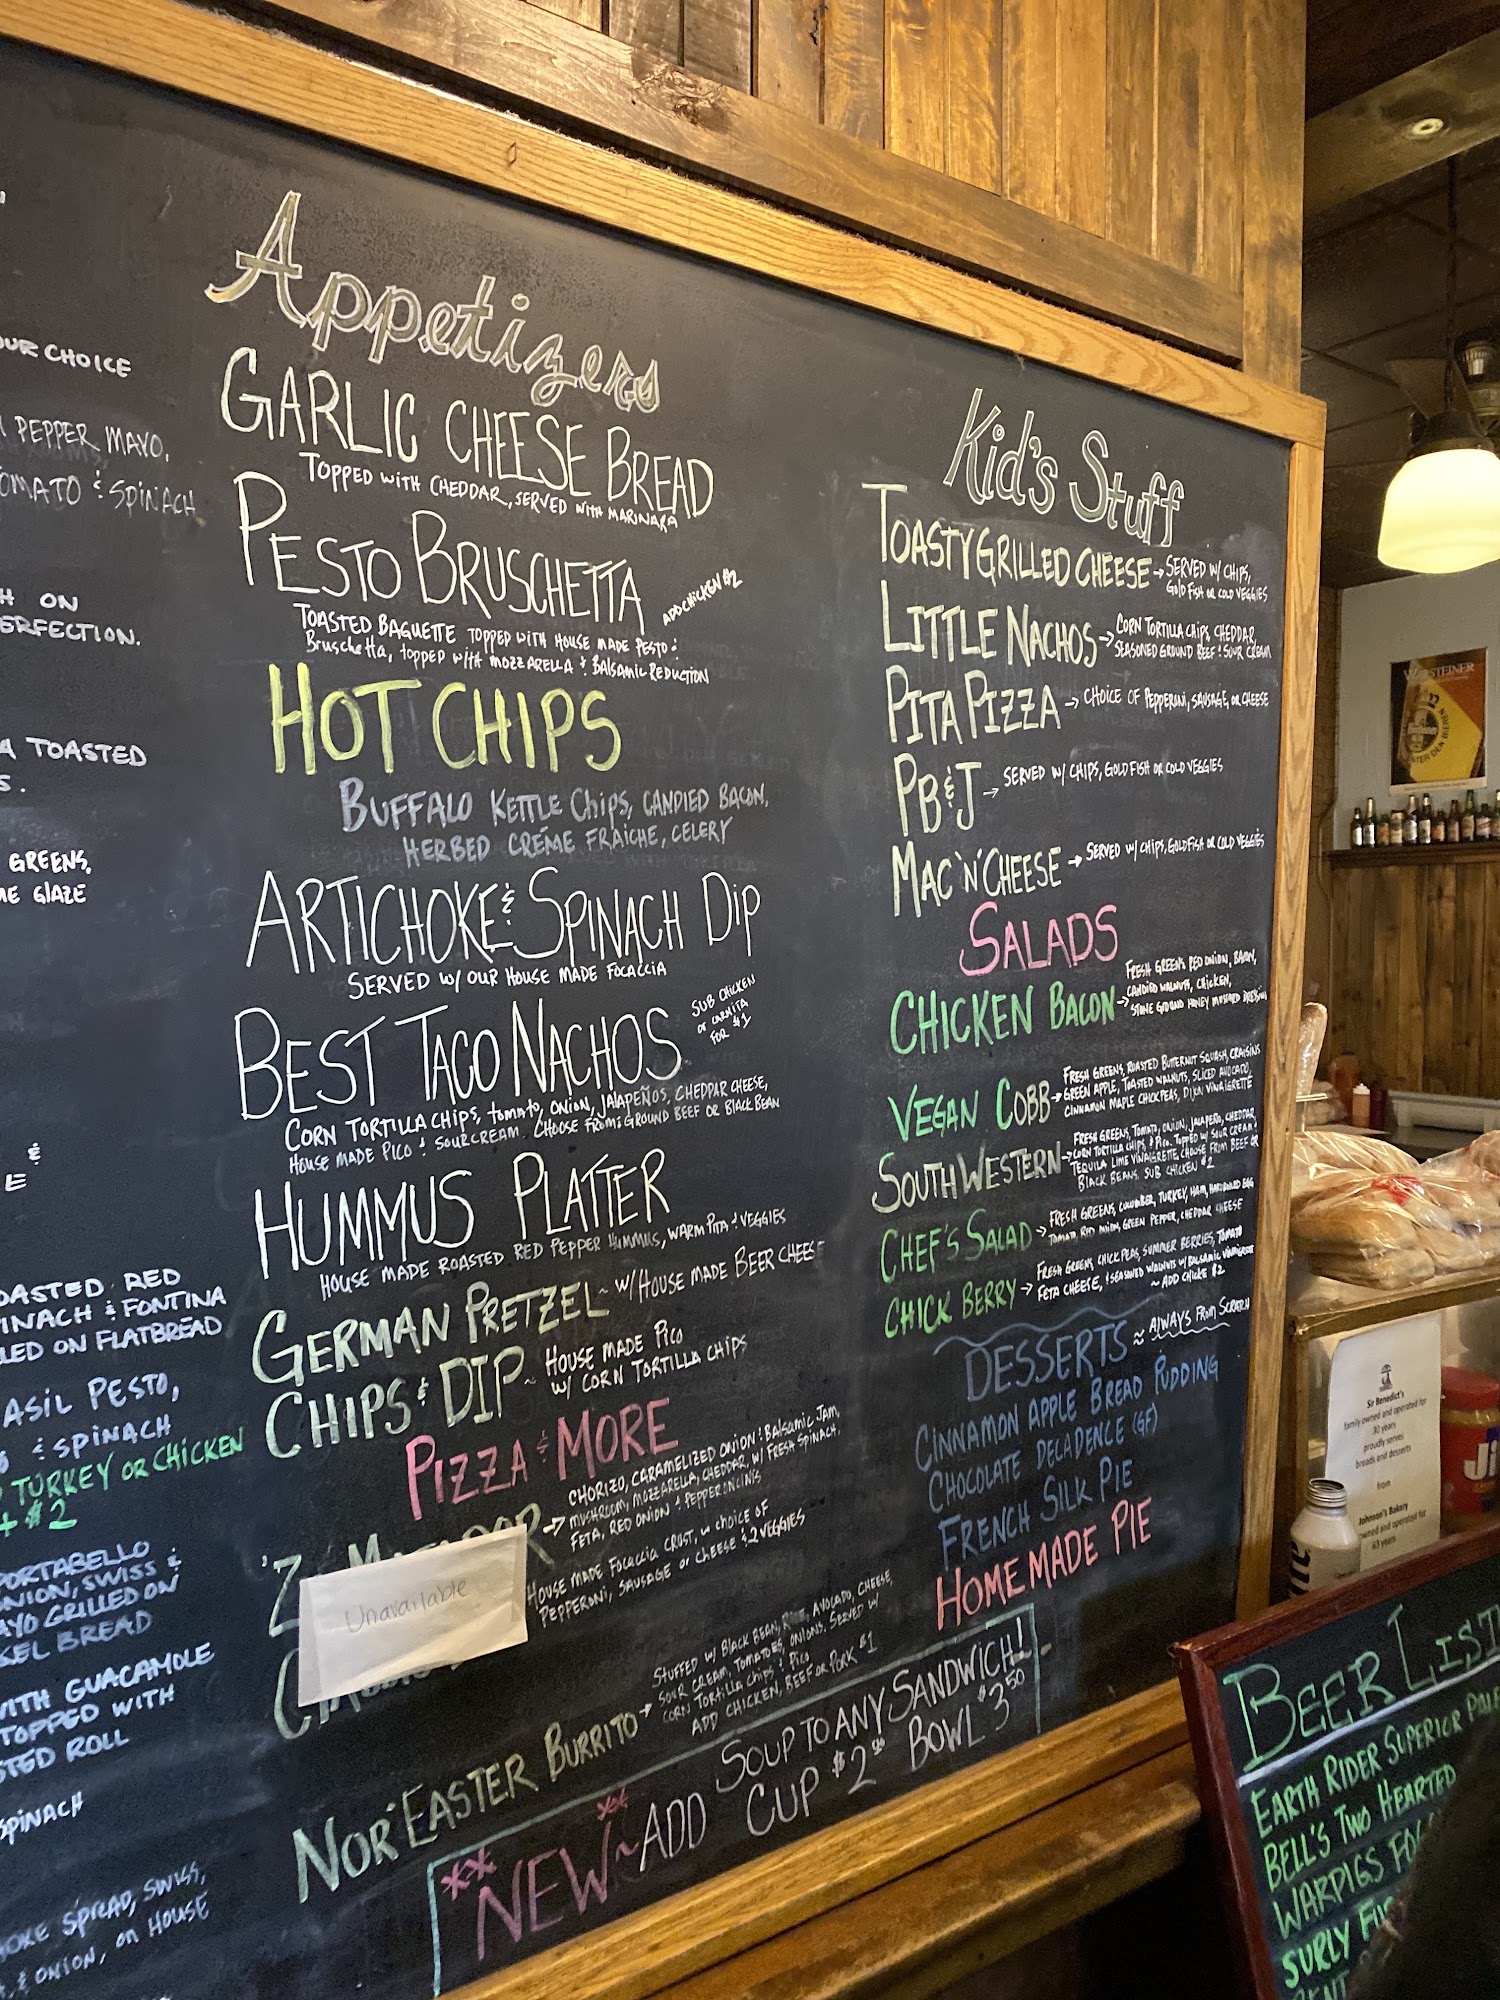 OUR CHOICE
PEPPER MAYO,
TOMATO & SPINACH
ON
PERFECTION.
A TOASTED
GREENS,
GLAZE
&
TOASTED RED
SPINACH & FONTINA
ON FLATBREAD
BASIL PESTO,
& SPINACH
TURKEY OR CHICKEN
+ $2
PORTABELLO
ONION, SWISS &
MAYO GRILLED ON
BREAD
WITH GUACAMOLE
TOPPED WITH
ROLL
SPINACH
SPREAD, SWISS,
& ONION, ON HOUSE
Appetizers
GARLIC CHEESE BREAD
TOPPED WITH CHEDDAR, SERVED WITH MARINARA
PESTO BRUSCHETTA
ADD CHICKEN $2
TOASTED BAGUETTE TOPPED WITH HOUSE MADE PESTO &
Bruschetta, TOPPED WITH MOZZARELLA & BALSAMIC REDUCTION
HOT CHIPS
BUFFALO KETTLE Chips, CANDIED BACON,
HERBED CRÉME FRAICHE, CELERY
ARTICHOKE & SPINACH DIP
SERVED W/ OUR HOUSE MADE FOCACCIA
BEST TACO NACHOS
SUB CHICKEN
OR CARNITA
FOR $1
CORN TORTILLA CHIPS, tomato, ONION, JALAPEÑOS, CHEDDAR CHEESE,
HOUSE MADE PICO & SOUR CREAM. CHOOSE FROM: GROUND BEEF OR BLACK BEAN
HUMMUS PLATTER
HOUSE MADE ROASTED RED PEPPER HUMMUS, WARM PITA & VEGGIES
GERMAN PRETZEL ~ W/ HOUSE MADE BEER CHEESE
CHIPS & DIP ~ HOUSE MADE PICO
W/ CORN TORTILLA CHIPS
PIZZA & MORE
CHORIZO, CARAMELIZED ONION & BALSAMIC JAM,
MUSHROOM, MOZZARELLA, CHEDDAR, W/ FRESH SPINACH,
FETA, RED ONION & PEPPERONCINIS
Unavailable
HOUSE MADE FOCACCIA CRUST, W CHOICE OF
PEPPERONI, SAUSAGE OR CHEESE $2 VEGGIES
NOR'EASTER BURRITO → STUFFED W/ BLACK BEAN, RICE, AVOCADO, CHEESE,
SOUR CREAM, TOMATOES, ONIONS. SERVED W/
CORN TORTILLA CHIPS & PICO
ADD CHICKEN, BEEF OR PORK $1
**NEW** ~ ADD SOUP TO ANY SANDWICH!
CUP $2.50 BOWL $3.50
Kid's Stuff
TOASTY GRILLED CHEESE → SERVED W/ CHIPS,
GOLDFISH OR COLD VEGGIES
LITTLE NACHOS → CORN TORTILLA CHIPS, CHEDDAR,
SEASONED GROUND BEEF & SOUR CREAM
PITA PIZZA → CHOICE OF PEPPERONI, SAUSAGE, OR CHEESE
PB & J → SERVED W/ CHIPS, GOLDFISH OR COLD VEGGIES
MAC 'N' CHEESE → SERVED W/ CHIPS, GOLDFISH OR COLD VEGGIES
SALADS
CHICKEN BACON → FRESH GREENS, RED ONION, BACON,
CANDIED WALNUTS, CHICKEN,
STONE GROUND HONEY MUSTARD DRESSING
VEGAN COBB → FRESH GREENS, ROASTED BUTTERNUT SQUASH, CRAISINS
GREEN APPLE, TOASTED WALNUTS, SLICED AVOCADO,
CINNAMON MAPLE CHICKPEAS, DIJON VINAIGRETTE
SOUTHWESTERN → FRESH GREENS, TOMATO, ONION, JALAPEÑO, CHEDDAR,
CORN TORTILLA CHIPS, & PICO. TOPPED W/ SOUR CREAM &
TEQUILA LIME VINAIGRETTE, CHOOSE FROM BEEF OR
BLACK BEANS. SUB CHICKEN $2
CHEF'S SALAD → FRESH GREENS, CUCUMBER, TURKEY, HAM, HARDBOILED EGG
TOMATO, RED ONION, GREEN PEPPER, CHEDDAR CHEESE
CHICK BERRY → FRESH GREENS, CHICKPEAS, SUMMER BERRIES, TOMATO
FETA CHEESE, & SEASONED WALNUTS W/ BALSAMIC VINAIGRETTE
~ ADD CHICKE $2
DESSERTS ≈ ALWAYS FROM SCRATCH
CINNAMON APPLE BREAD PUDDING
CHOCOLATE DECADENCE (GF)
FRENCH SILK PIE
HOMEMADE PIE
WARSTEINER
Sir Benedict's
family owned and operated for
30 years
proudly serves
breads and desserts
from
Johnson's Bakery
owned and operated for
63 years
BEER LIST
EARTH RIDER SUPERIOR PALE
BELL'S TWO HEARTED
WARPIGS
SURLY